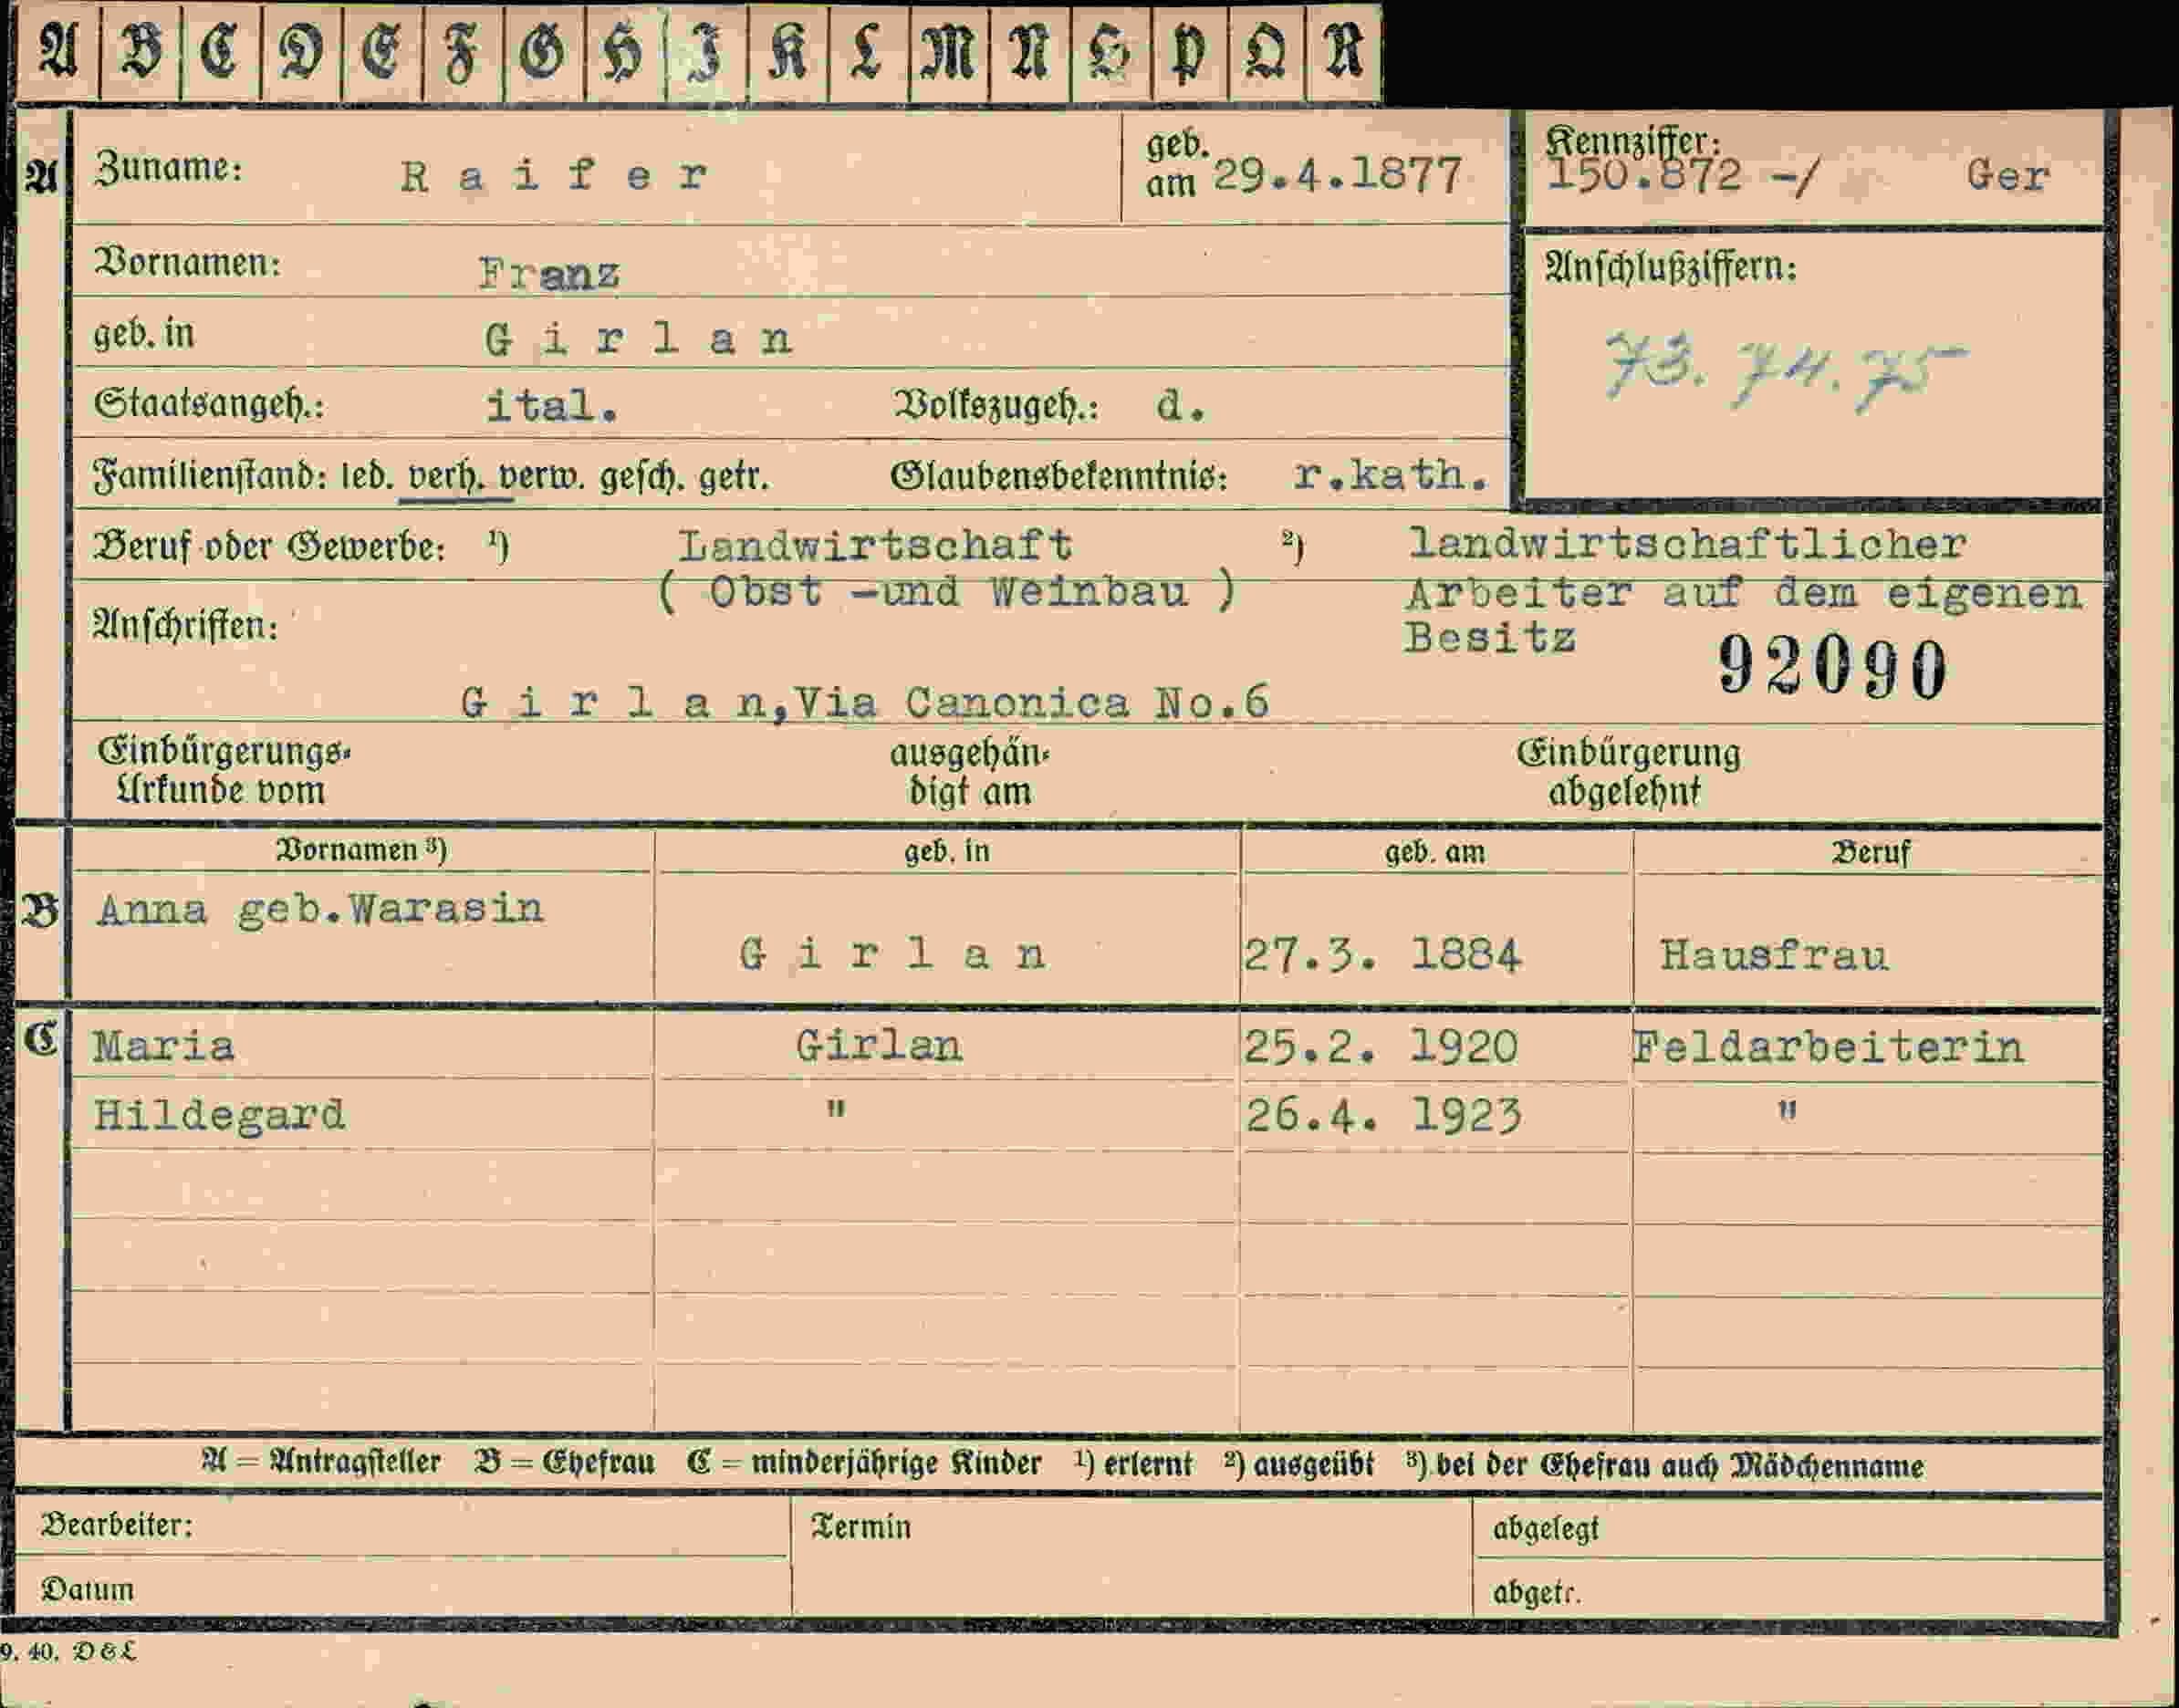 A B C D E F G H J K L M N O P Q R
A Zuname: Raifer geb. am 29.4.1877 Kennziffer: 150.872 -/ Ger
Vornamen: Franz Anschlußziffern:
geb. in Girlan 73. 74. 75
Staatsangeh.: ital. Volkszugeh.: d.
Familienstand: led. verh. verw. gesch. getr. Glaubensbekenntnis: r.kath.
Beruf oder Gewerbe: ¹) Landwirtschaft ²) landwirtschaftlicher
( Obst -und Weinbau ) Arbeiter auf dem eigenen
Anschriften: Besitz 92090
Girlan,Via Canonica No.6
Einbürgerungs- ausgehän- Einbürgerung
Urkunde vom digt am abgelehnt
Vornamen ³) geb. in geb. am Beruf
B Anna geb.Warasin
Girlan 27.3. 1884 Hausfrau
C Maria Girlan 25.2. 1920 Feldarbeiterin
Hildegard " 26.4. 1923 "
A = Antragsteller B = Ehefrau C = minderjährige Kinder ¹) erlernt ²) ausgeübt ³) bei der Ehefrau auch Mädchenname
Bearbeiter: Termin abgelegt
Datum abgetr.
9. 40. D&L